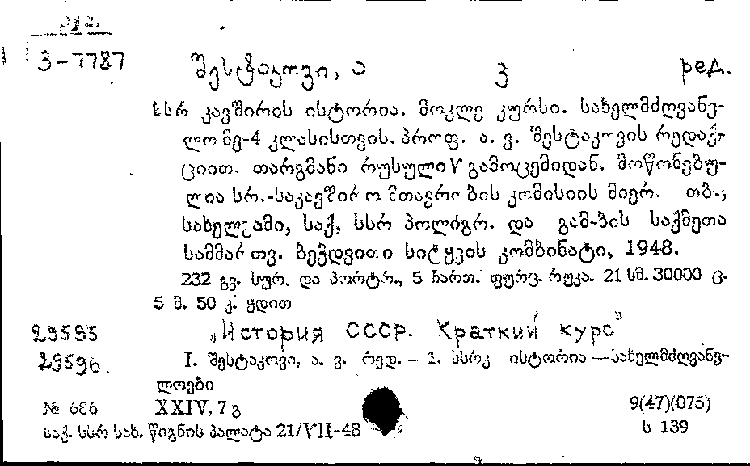 3-7787
შესტაკოვი, ა ვ რედ.
სსრ კავშირის ისტორია. მოკლე კურსი. სახელმძღვანე-
ლო მე-4 კლასისთვის. პროფ. ა. ვ. შესტაკოვის რედაქ-
ციით. თარგმანი რუსული V გამოცემიდან. მოწონებუ-
ლია სრ.-საკავშირო მთავრობის კომისიის მიერ. თბ.,
სახელგამი, საქ. სსრ პოლიგრ. და გამ-ბის საქმეთა
სამმართვ. ბეჭდვითი სიტყვის კომბინატი, 1948.
232 გვ. სურ. და პორტრ., 5 ჩართ. ფურც. რუკა. 21 სმ. 30000 ც.
5 მ. 50 კ. ყდით
29595 „История СССР. Краткий курс"
29596. I. შესტაკოვი, ა. ვ. რედ. — 1. სსრკ ისტორია — სახელმძღვანე-
ლოები
№ 686 XXIV. 7 გ 9(47)(075)
საქ. სსრ სახ. წიგნის პალატა 21/VII-48 ს 139